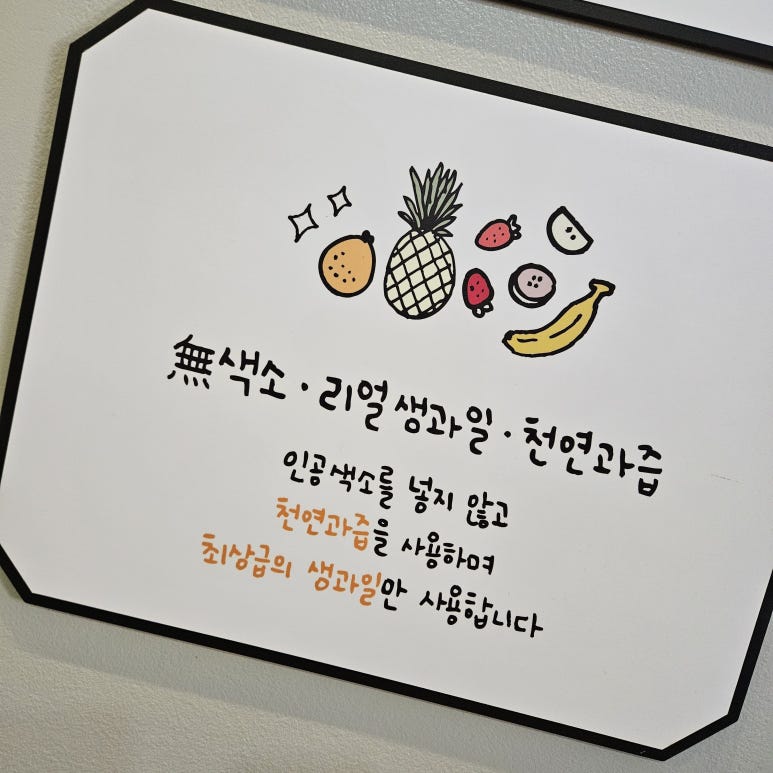 無색소·리얼생과일·천연과즙
인공색소를 넣지 않고
천연과즙을 사용하며
최상급의 생과일만 사용합니다